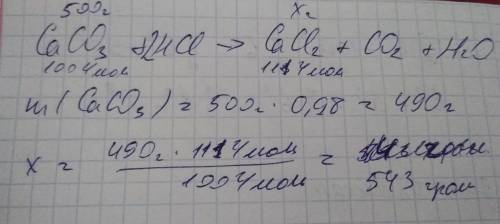 500г хг
CaCO₃ + 2HCl → CaCl₂ + CO₂ + H₂O
100г/моль 111г/моль
m(CaCO₃) = 500г · 0,98 = 490г
x = 490г · 111г/моль / 100г/моль = 543 грам